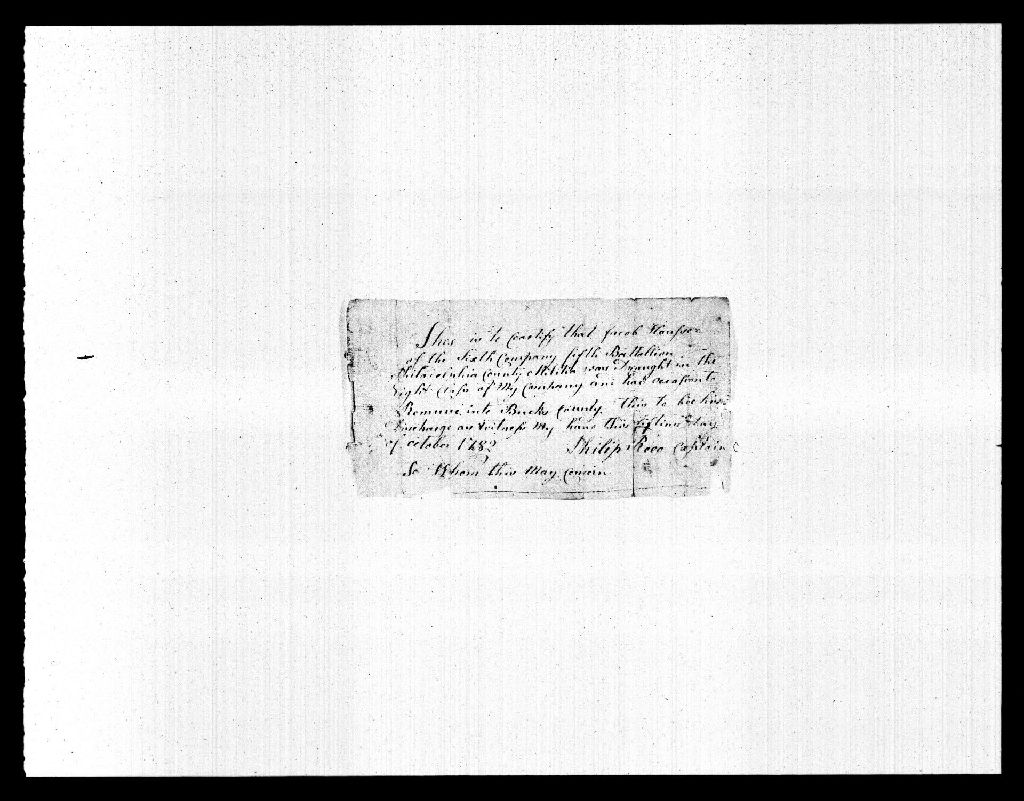 This is to Certify that Jacob
of the Sixth Company fifth Battallion
Philadelphia County Militia was Draught in the
Eight Class of My Company and has Occasion to
Remove into Bucks County this to bee his
Discharge as Witness My hand this fifteins day
of October 178 Philip Captain
To Whom this May Concern